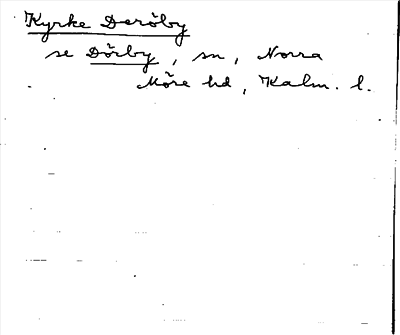 Kyrke Deröby
se Dörby, sn, Norra
Möre hd, Kalm. l.